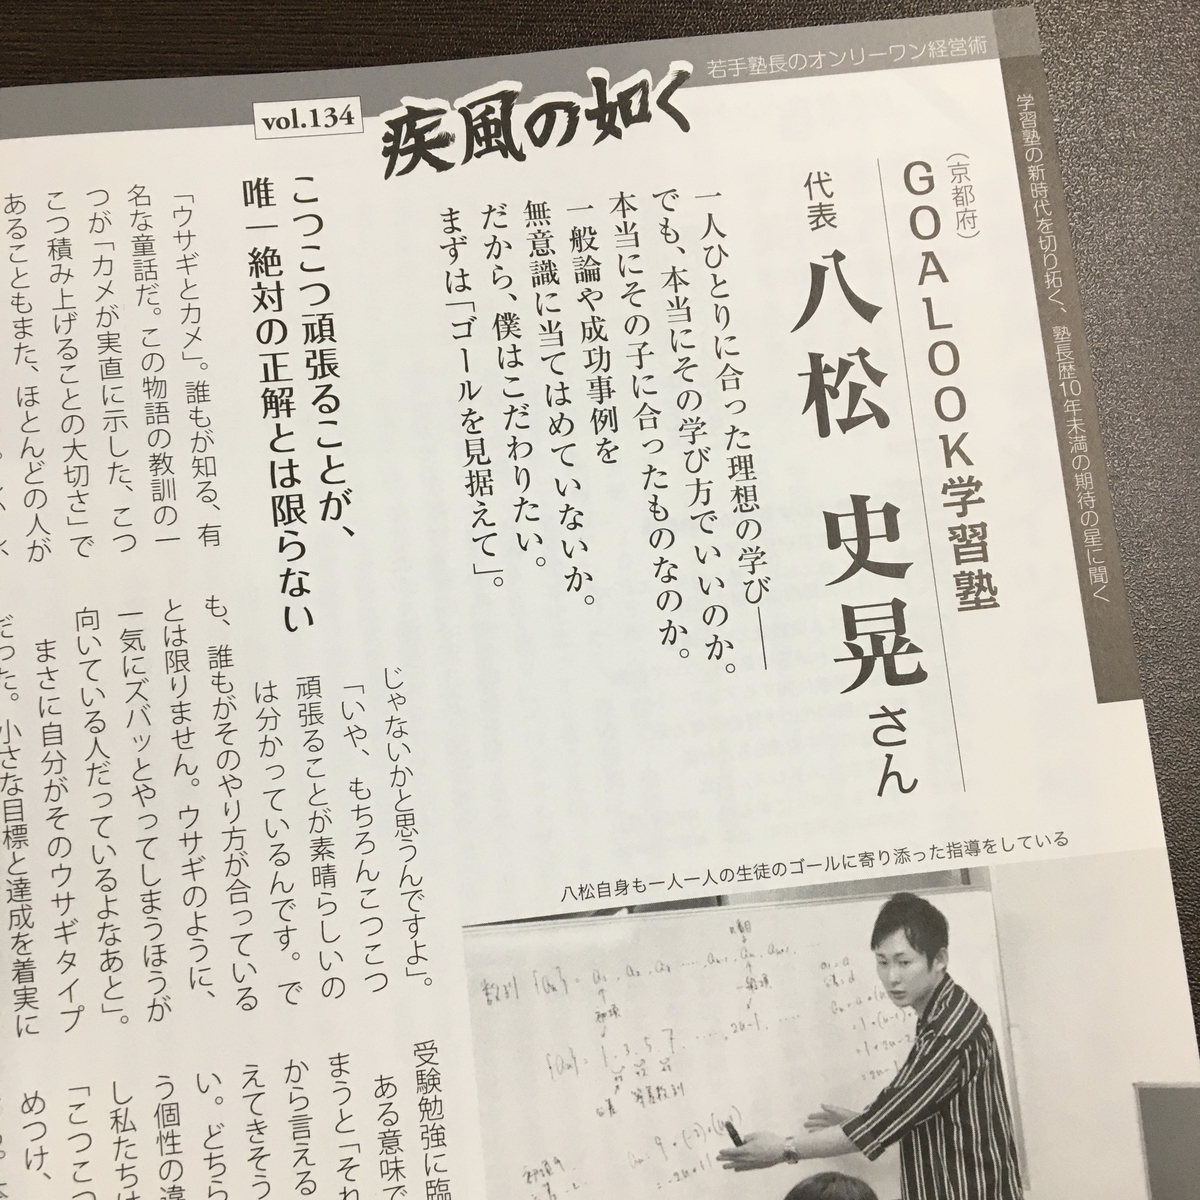 若手塾長のオンリーワン経営術
vol.134
疾風の如く
学習塾の新時代を切り拓く、塾長歴10年未満の期待の星に聞く
(京都府)
GOALOOK学習塾
代表 八松 史晃さん
一人ひとりに合った理想の学び――
でも、本当にその学び方でいいのか。
本当にその子に合ったものなのか。
一般論や成功事例を
無意識に当てはめていないか。
だから、僕はこだわりたい。
まずは「ゴールを見据えて」。
こつこつ頑張ることが、
唯一絶対の正解とは限らない
「ウサギとカメ」。誰もが知る、有
名な童話だ。この物語の教訓の一
つが「カメが実直に示した、こつ
こつ積み上げることの大切さ」で
あることもまた、ほとんどの人が
じゃないかと思うんですよ」。
「いや、もちろんこつこつ
頑張ることが素晴らしいの
は分かっているんです。で
も、誰もがそのやり方が合っている
とは限りません。ウサギのように、
一気にズバッとやってしまうほうが
向いている人だっているよなあと」。
まさに自分がそのウサギタイプ
だった。小さな目標と達成を着実に
八松自身も一人一人の生徒のゴールに寄り添った指導をしている
受験勉強に臨
ある意味で
まうと「それ
から言える
えてきそう
い。どちら
う個性の違
し私たちは
「こつこつ
めつけ、